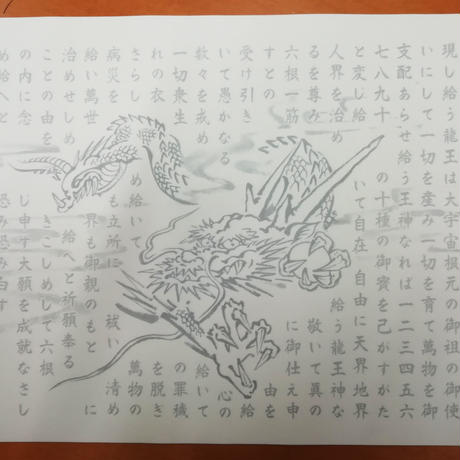 現し給う龍王は大宇宙根元の御祖の御使
いにして一切を産み一切を育て萬物を御
支配あらせ給う王神なれば一二三四五六
七八九十 の十種の御寶を己がすがた
と変じ給 いて自在 自由に天界地界
人界を治め 給う龍王神な
るを尊み 敬いて真の
六根一筋 に御仕え申
すとの 由を
受け引き 給
いて愚かなる 心の
数々を戒め 給いて
一切衆生 の罪穢
れの衣 を脱ぎ
さらし め給いて 萬物の
病災を も立所に 祓い清め
給い萬世 界も御親のもと に
治めせしめ 給へと祈願奉る
ことの由を きこしめして六根
の内に念 じ申す大願を成就なさし
め給へと 恐み恐み白す